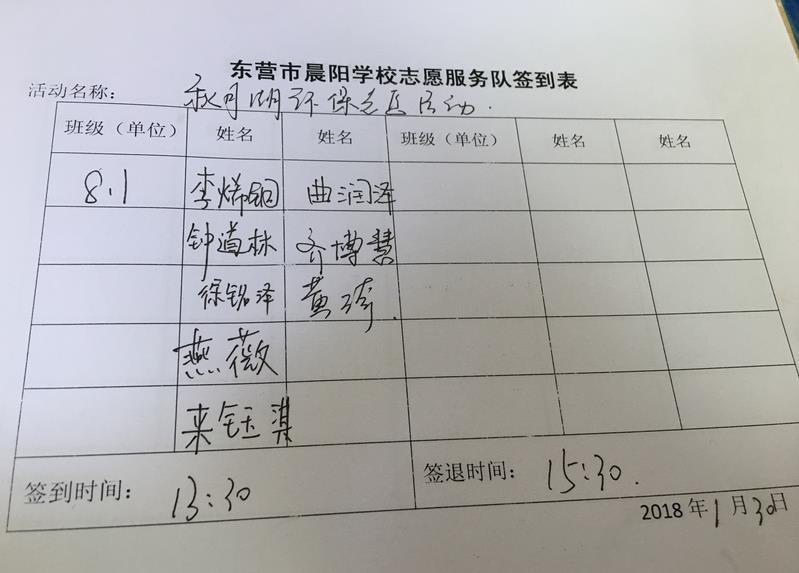 东营市晨阳学校志愿服务队签到表
活动名称： 秋月湖环保志愿活动.
班级（单位） 姓名 姓名 班级（单位） 姓名 姓名
8.1 李烯铜 曲润泽
钟道林 齐博慧
徐铭泽 黄琦.
燕薇
来钰淇
签到时间： 13:30 签退时间： 15:30.
2018年1月30日